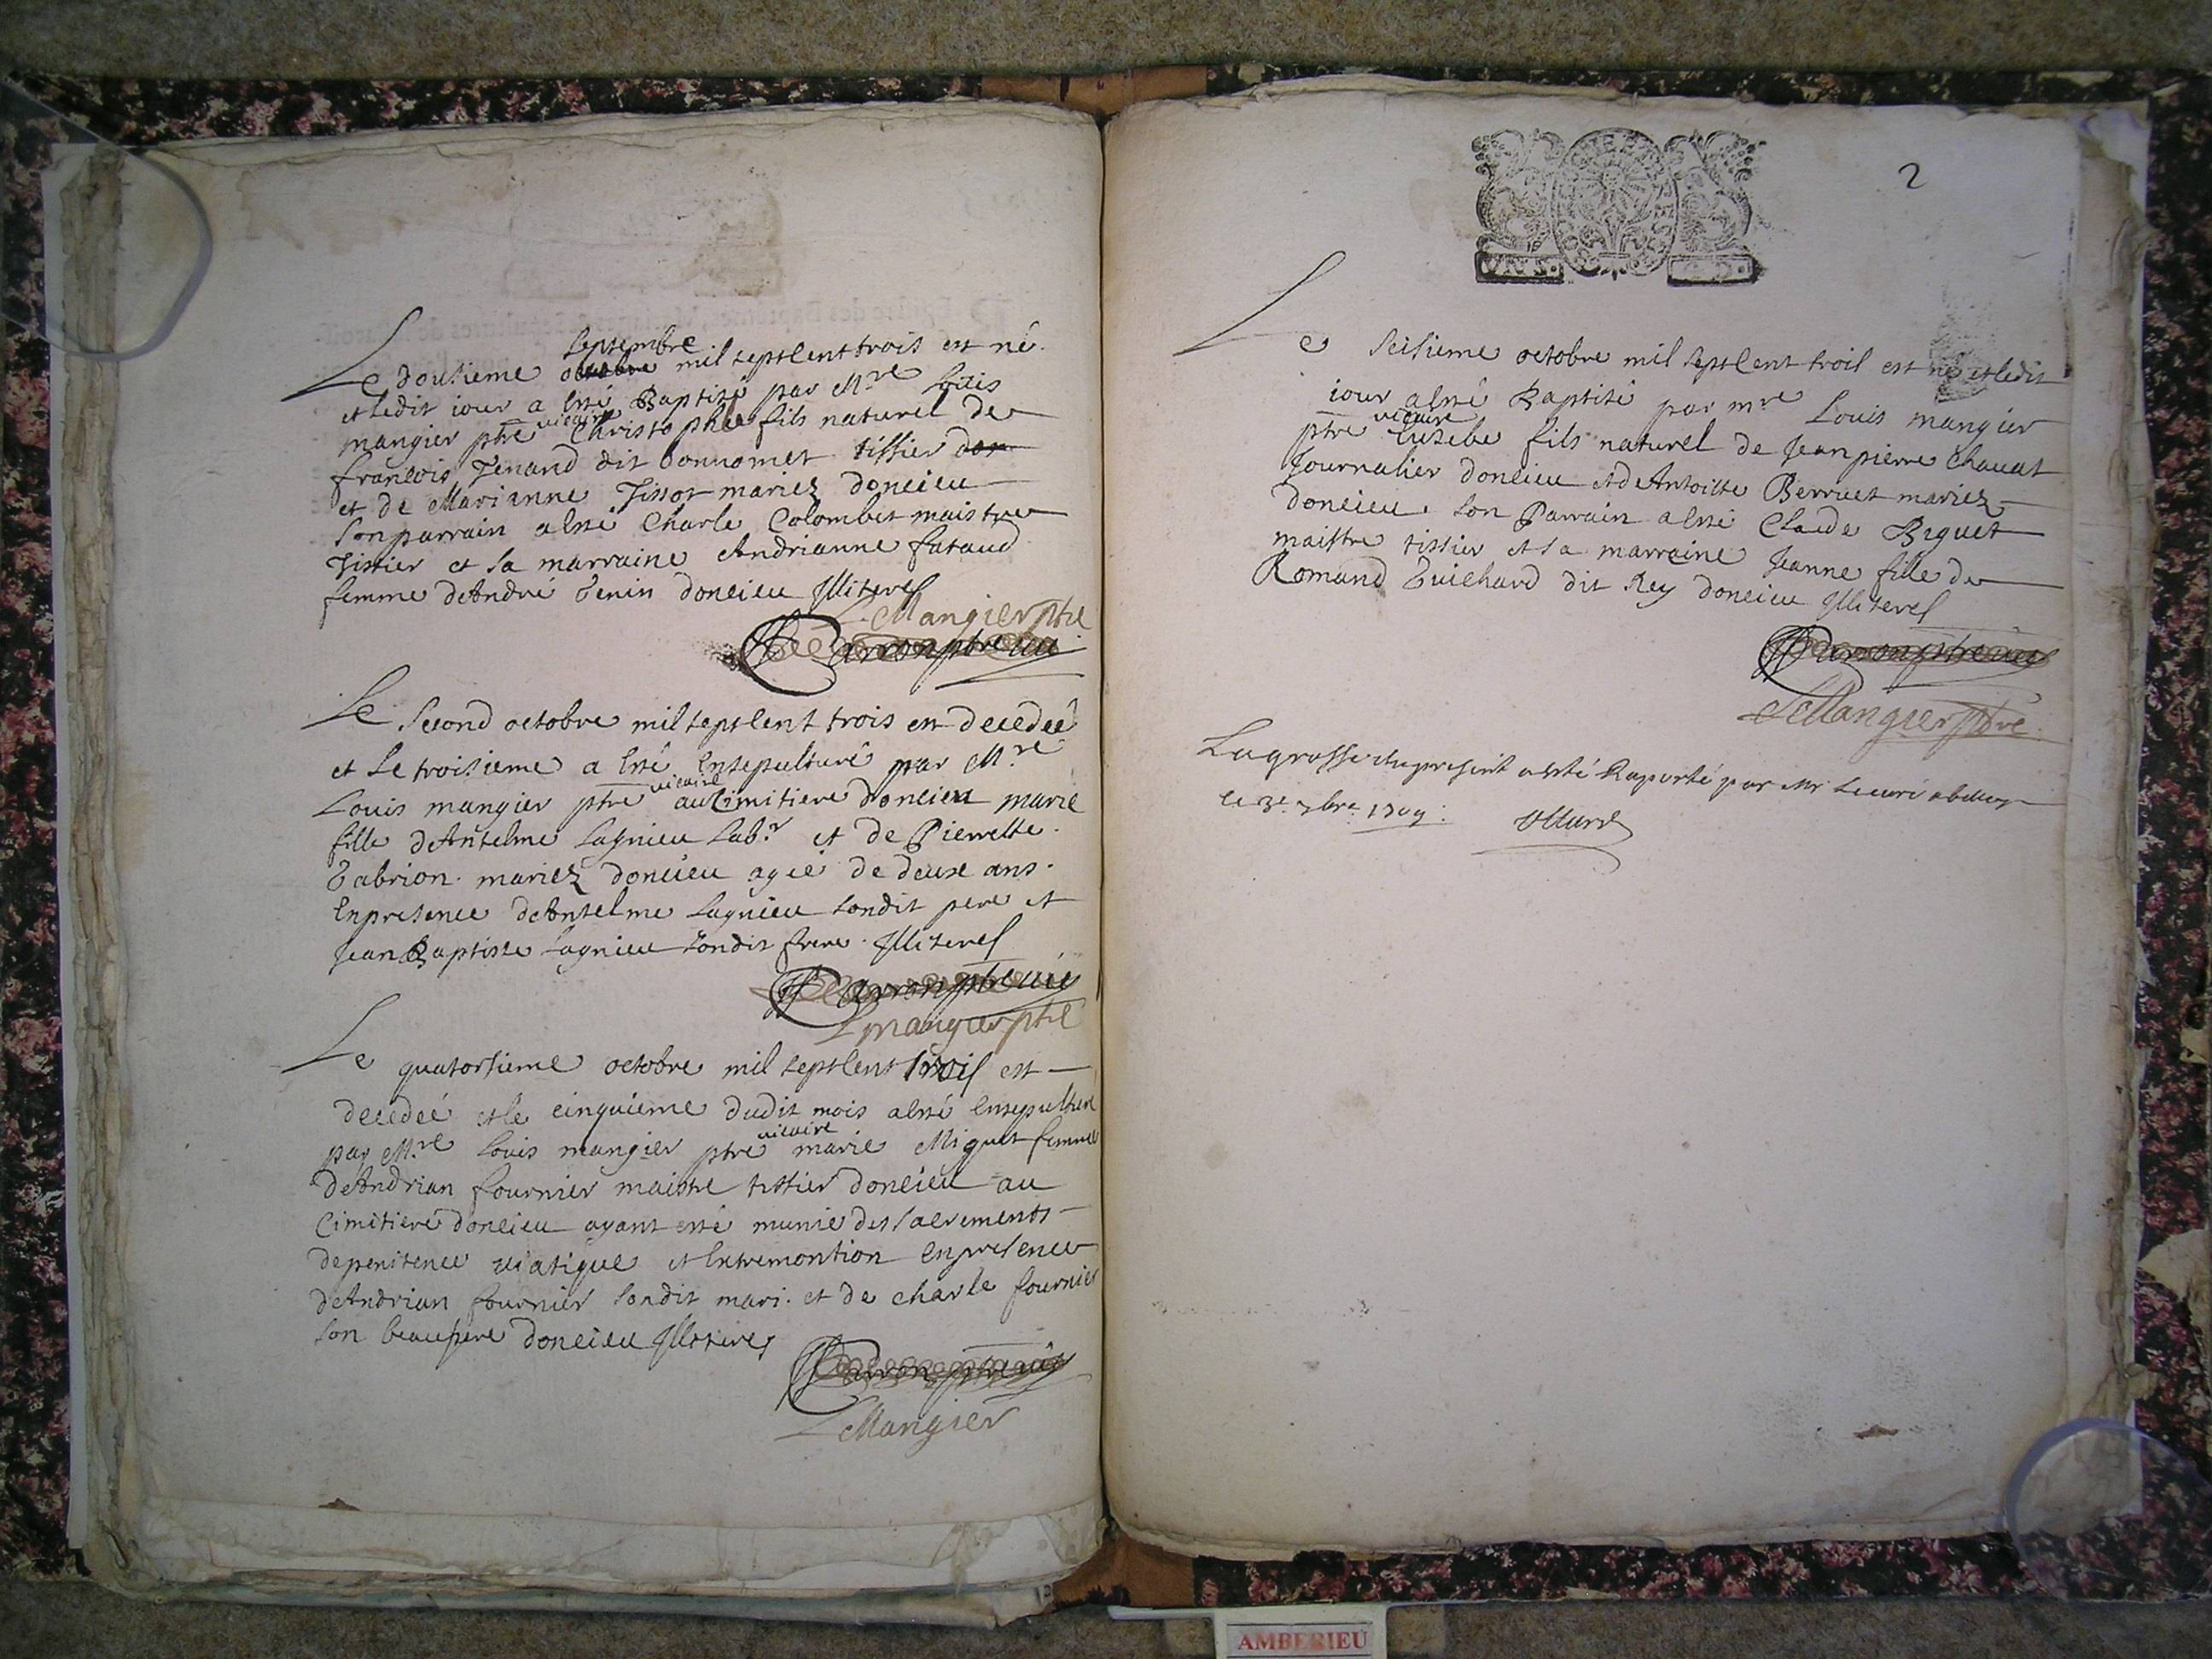 septembre
Le dousieme octobre mil sept cent trois est né
et ledit iour a esté Baptisé par Mre Louis
mangier ptre vicaire Christophle fils naturel de
françois Tenand dit bonnomet tissier don
et de Marianne Tissot mariez doncieu
son parrain a esté Charle Colombet maistre
Tissier et sa marraine Andrianne fataud
femme d'André Genin doncieu Illiterés
L. Mangier ptre
Carron ptre curé
Le second octobre mil sept cent trois est decedeé
et le troisieme a esté ensepulturé par Mre
Louis mangier ptre vicaire au cimitiere doncieu marie
fille d'Antelme Lagnieu Labr et de Pierrette
Tabrion mariez doncieu ageé de deux ans
en presence d'Antelme Lagnieu sondit pere et
Jean Baptiste Lagnieu sondit frere Illiterés
Carron ptre curé
L mangier ptre
Le quatorsieme octobre mil sept cent trois est
decedeé et le cinquieme dudit mois a esté ensepulturé
par Mre Louis mangier ptre vicaire marie Miguet femme
d'Andrian fournier maistre tissier doncieu au
cimitiere doncieu ayant esté munie des sacrements
de penitence viatique et extremontion en presence
d'Andrian fournier sondit mari et de charle fournier
son beaupere doncieu Illiteres
Carron ptre curé
L Mangier
2
Le seisieme octobre mil sept cent trois est né et ledit
iour a esté Baptisé par mre Louis mangier
ptre vicaire Eusebe fils naturel de Jean pierre Chavat
Journalier doncieu et de Antoilte Berruet mariez
doncieu son Parrain a esté Claude Biguet
maistre tissier et sa marraine Jeanne fille de
Romand Guichard dit Rey doncieu Illiterés
Carron ptre curé
L Mangier ptre
La grosse du present a esté Raporté par Mr Le curé
le 3e 7bre 1709
AMBERIEU